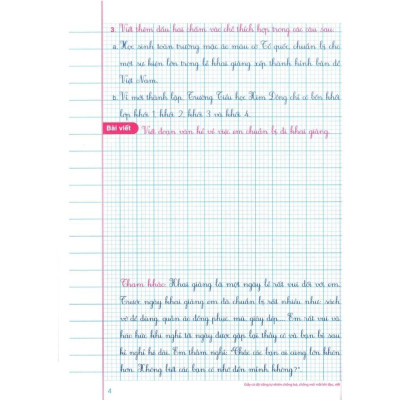 3. Viết thêm dấu hai chấm vào chỗ thích hợp trong các câu sau.
a. Học sinh toàn trường mặc áo màu cờ Tổ quốc, chuẩn bị cho
một sự kiện lớn trong lễ khai giảng xếp thành hình bản đồ
Việt Nam.
b. Vì mới thành lập, Trường Tiểu học Kim Đồng chỉ có bốn khối
lớp khối 1, khối 2, khối 3 và khối 4.
Bài viết
Viết đoạn văn kể về việc em chuẩn bị đi khai giảng.
Tham khảo: Khai giảng là một ngày lễ rất vui đối với em.
Trước ngày khai giảng em đã chuẩn bị rất nhiều như sách
vở đồ dùng, quần áo đồng phục, mũ, giày dép... Em rất vui và
háo hức khi nghĩ tới ngày được gặp lại thầy cô và bạn bè sau
kì nghỉ hè dài. Em thầm nghĩ: "Chắc các bạn ai cũng lớn khôn
hơn. Không biết các bạn có nhớ đến mình không?".
4